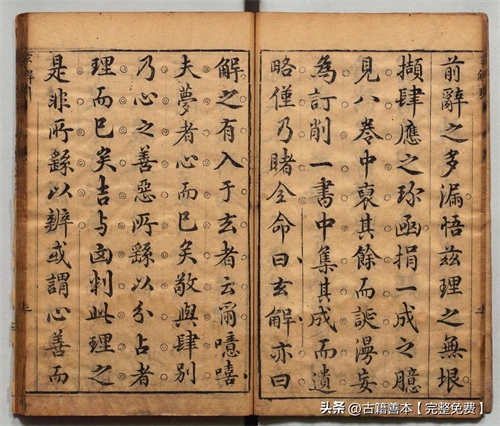 前辭之多漏悟茲理之無垠
擷肆應之珎函捐一成之臆
見八卷中裒其餘而誕漫妄
為訂削一書中集其成而遺
略僅乃睹全命曰玄解亦曰
解之有入于玄者云爾噫嘻
夫夢者心而已矣敬與肆別
乃心之善惡所繇以分占者
理而已矣吉与凶判此理之
是非所繇以辨或謂心善而
头条 @古籍善本【完整免费】